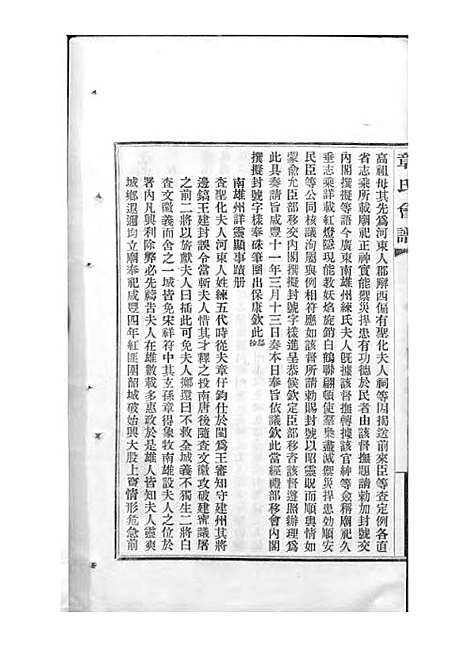 章氏會譜
高祖母其先為河東人郡廨西偏有聖化夫人祠等因揭送前來臣等查定例各直
省志乘所載廟祀正神實能禦災捍患有功德於民者由該督撫題請勅加封號
內閣撰擬等語今廣東南雄州練氏夫人既據該督撫轉據該官紳等僉稱廟祀久
垂志乘詳載紅燈隱現能教妖焰旋銷白鶴聯翩頓使羣黎盡滅禦災捍患有功順安
民臣等公同核議洵屬與例相符應如該督所請勅賜封號以昭靈貺而順輿情如
蒙俞允臣部移交內閣撰擬封號字樣進呈恭候欽定臣部移咨該督遵照辦理為
此具奏請旨咸豐十一年三月十三日奏本日奉旨依議欽此當經禮部移會內閣
撰擬封號字樣奉硃筆圈出保康欽此
南雄州詳靈顯事蹟冊
查聖化夫人河東人姓練五代時從夫章仔鈞仕於閩為王審知守建州其將
邊鎬王建封誤令當斬夫人惜其才釋之投南唐後隨查文徽攻破建甯議屠
之前二將以旂獻夫人曰插此可免夫人擲還曰不救全城義不獨生二將白
查文徽義而舍之一城皆免宋祥符中其玄孫章得象牧南雄設夫人之位於
署內凡興利除弊必先禱告夫人在雄數載多惠政於是雄人皆知夫人靈爽
城鄉遐邇均立廟奉祀咸豐四年紅匪圍韶城破始興大股上竄情形危急前